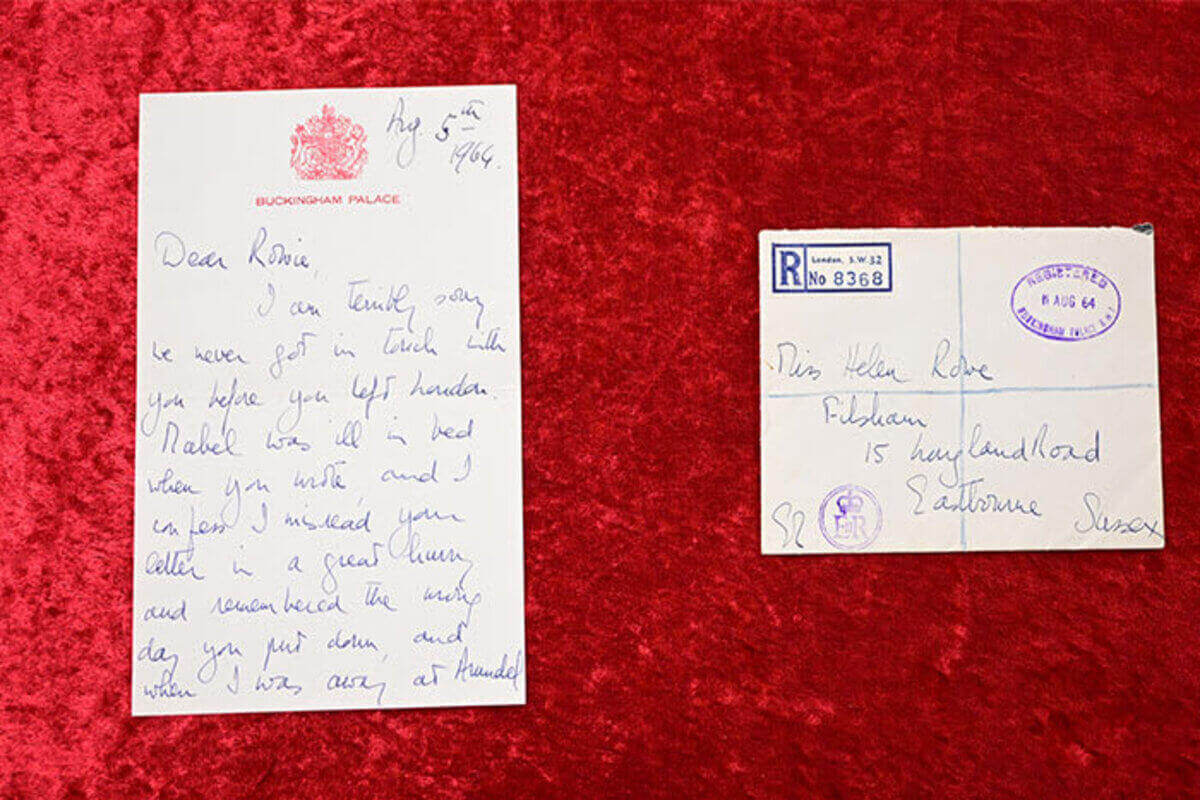 Aug. 5th
1964.
BUCKINGHAM PALACE
Dear Rowie,
I am terribly sorry
we never got in touch with
you before you left London.
Mabel was ill in bed
when you wrote, and I
confess I misread your
letter in a great hurry
and remembered the wrong
day you put down, and
when I was away at Arundel
R London, S.W.32
No 8368
REGISTERED
AUG 64
BUCKINGHAM PALACE S.W.1
Miss Helen Rowe
Filsham
15 Langland Road
Eastbourne
Sussex
ER
EIIR